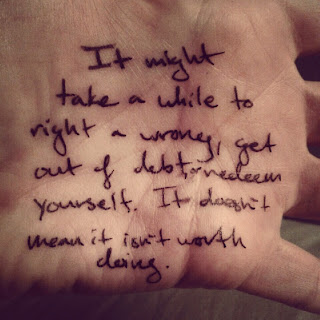 It might
take a while to
right a wrong, get
out of debt, or redeem
yourself. It doesn't
mean it isn't worth
doing.